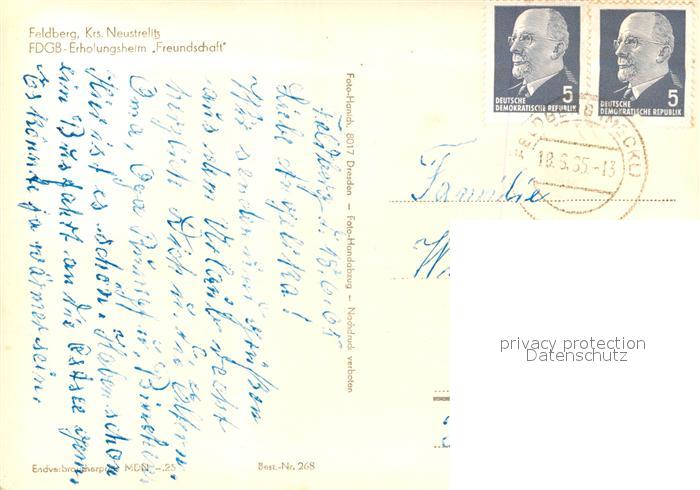 Feldberg, Krs. Neustrelitz
FDGB-Erholungsheim „Freundschaft"
Feldberg, d. 18.6.65
Liebe Angelika!
Wir senden und grüßen
aus dem Urlaub recht
herzlich Dich u. die Eltern,
Oma, Opa
Hier ist es schön. Haben schon
ein Busfahrt an die Ostsee gem.
Es könnte ja wärmer sein.
Foto-Hanich, 8017 Dresden — Foto-Handabzug — Nachdruck verboten
Endverbraucherpreis MDN -.25
Best.-Nr. 268
5
DEUTSCHE
DEMOKRATISCHE REPUBLIK
5
DEUTSCHE
DEMOKRATISCHE REPUBLIK
18.6.65-13
Familie
privacy protection
Datenschutz